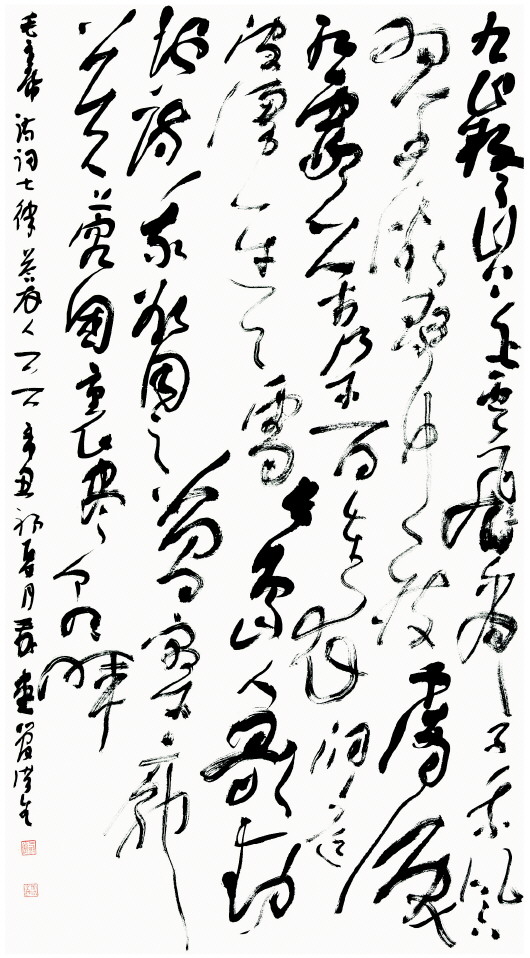 九嶷山上白云飞帝子乘风下
翠微斑竹一枝千滴泪
红霞万朵百重衣洞庭
波涌连天雪长岛人歌动
地诗我欲因之梦寥廓
芙蓉国里尽朝晖
毛主席诗词七律答友人 辛丑初春月